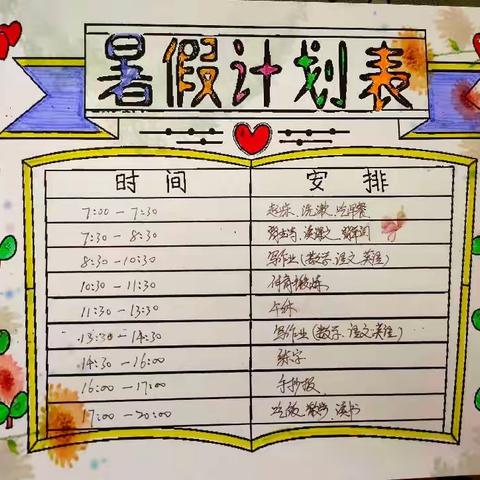 暑假计划表
时间 安排
7:00 — 7:30 起床、洗漱、吃早餐
7:30 — 8:30 背古诗、读课文、
8:30 — 10:30 写作业(数学、语文、英语)
10:30 — 11:30 体育锻炼
11:30 — 13:30 午休
13:30 — 14:30 写作业(数学、语文、英语)
14:30 — 16:00 练字
16:00 — 17:00 手抄报
17:00 — 20:00 吃饭、散步、读书